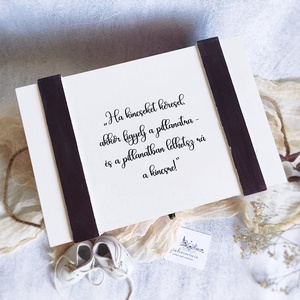 „Ha kincseket keresel,
akkor figyelj a pillanatra -
és a pillanatban lelhetsz rá
a kincsre!"